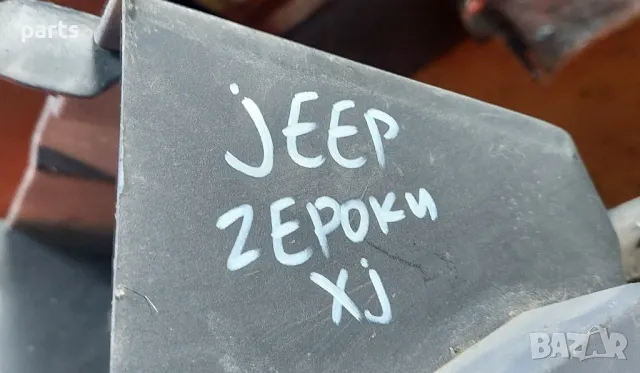 parts
jEEP
ZEPOKи
xj
BAZAR